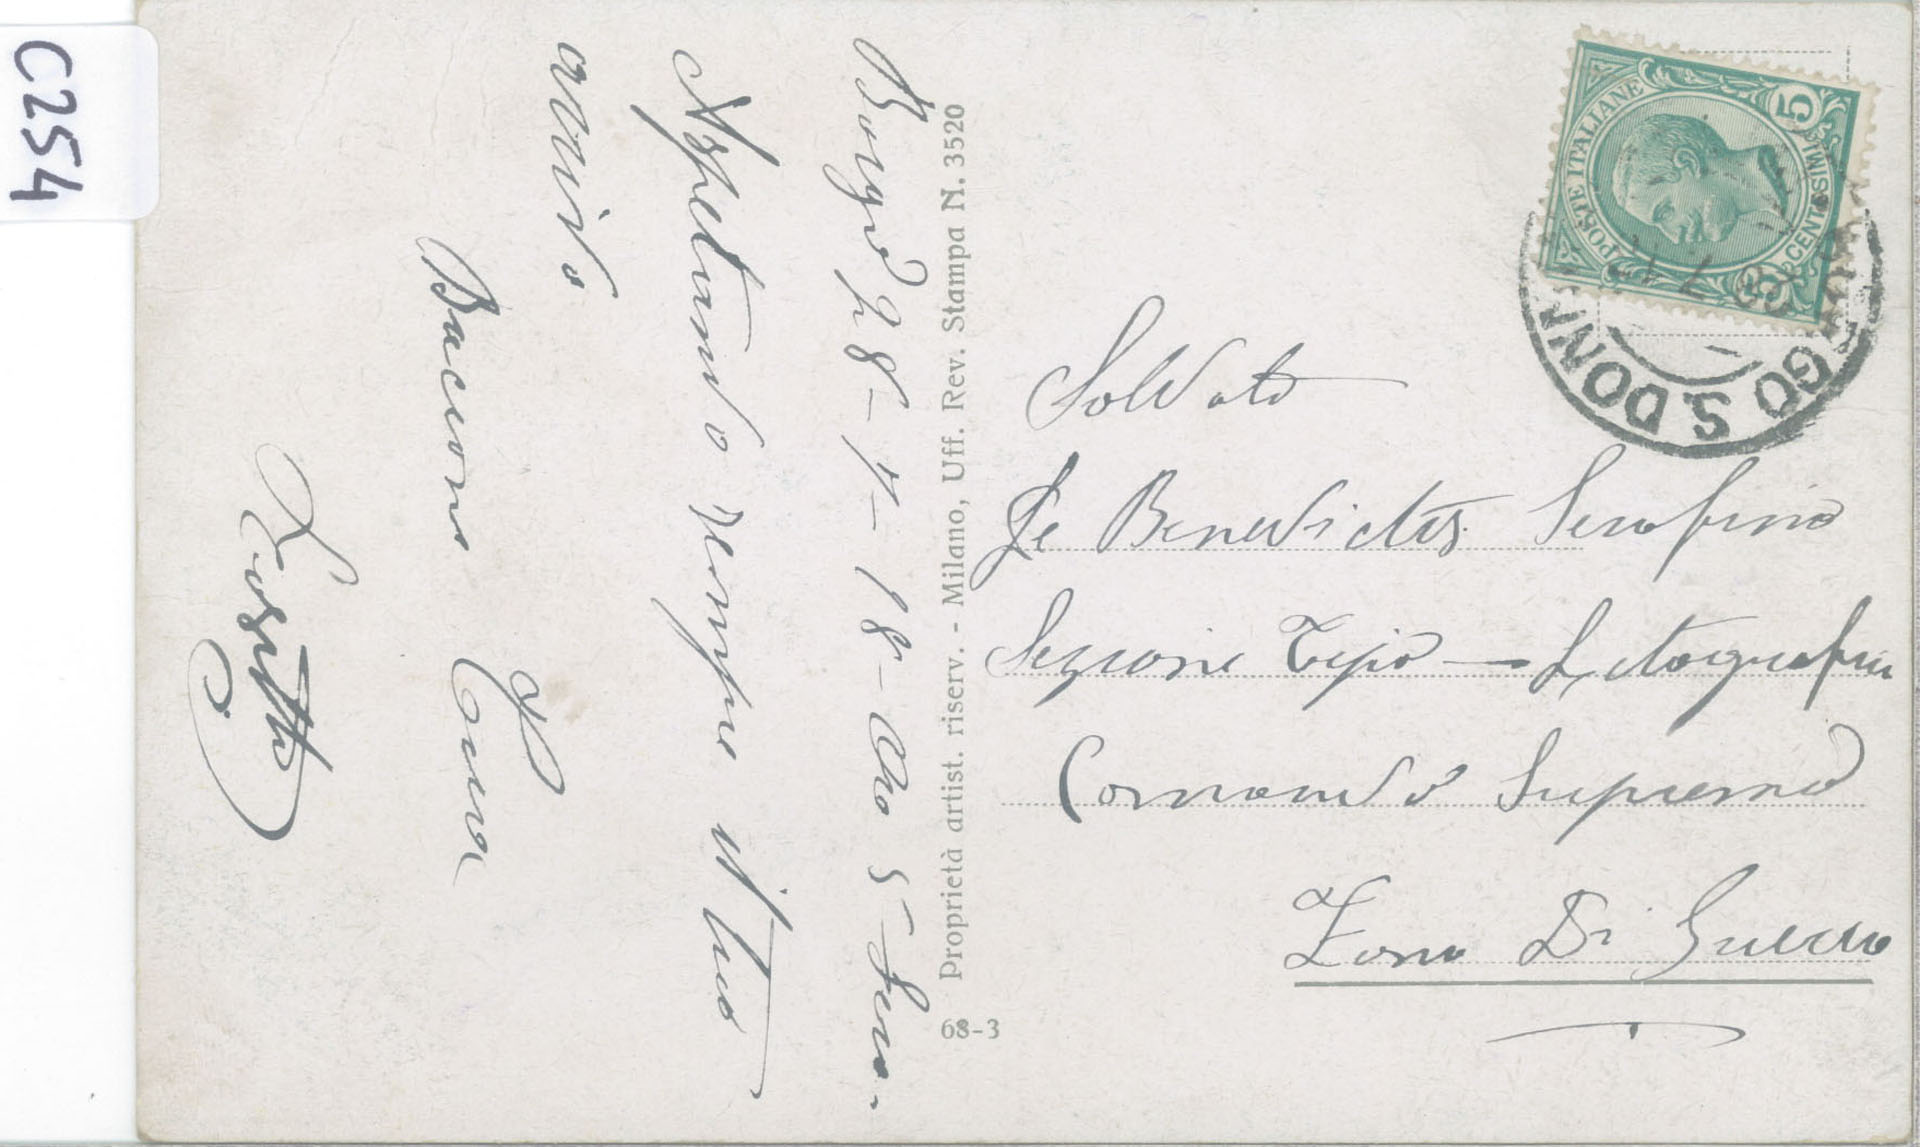 C254
Borgo 28-7-18- Ore 5 Sera.
Aspetando sempre il tuo
aviso
Bacioni
Cara
Proprietà artist. riserv. - Milano, Uff. Rev. Stampa N. 3520
68-3
POSTE ITALIANE
5
CENTESIMI
5
BORGO S. DONN
Soldato
De Benedictis Serafino
Sezione Tipo - Litografia
Comando Supremo
Zona Di Guerra